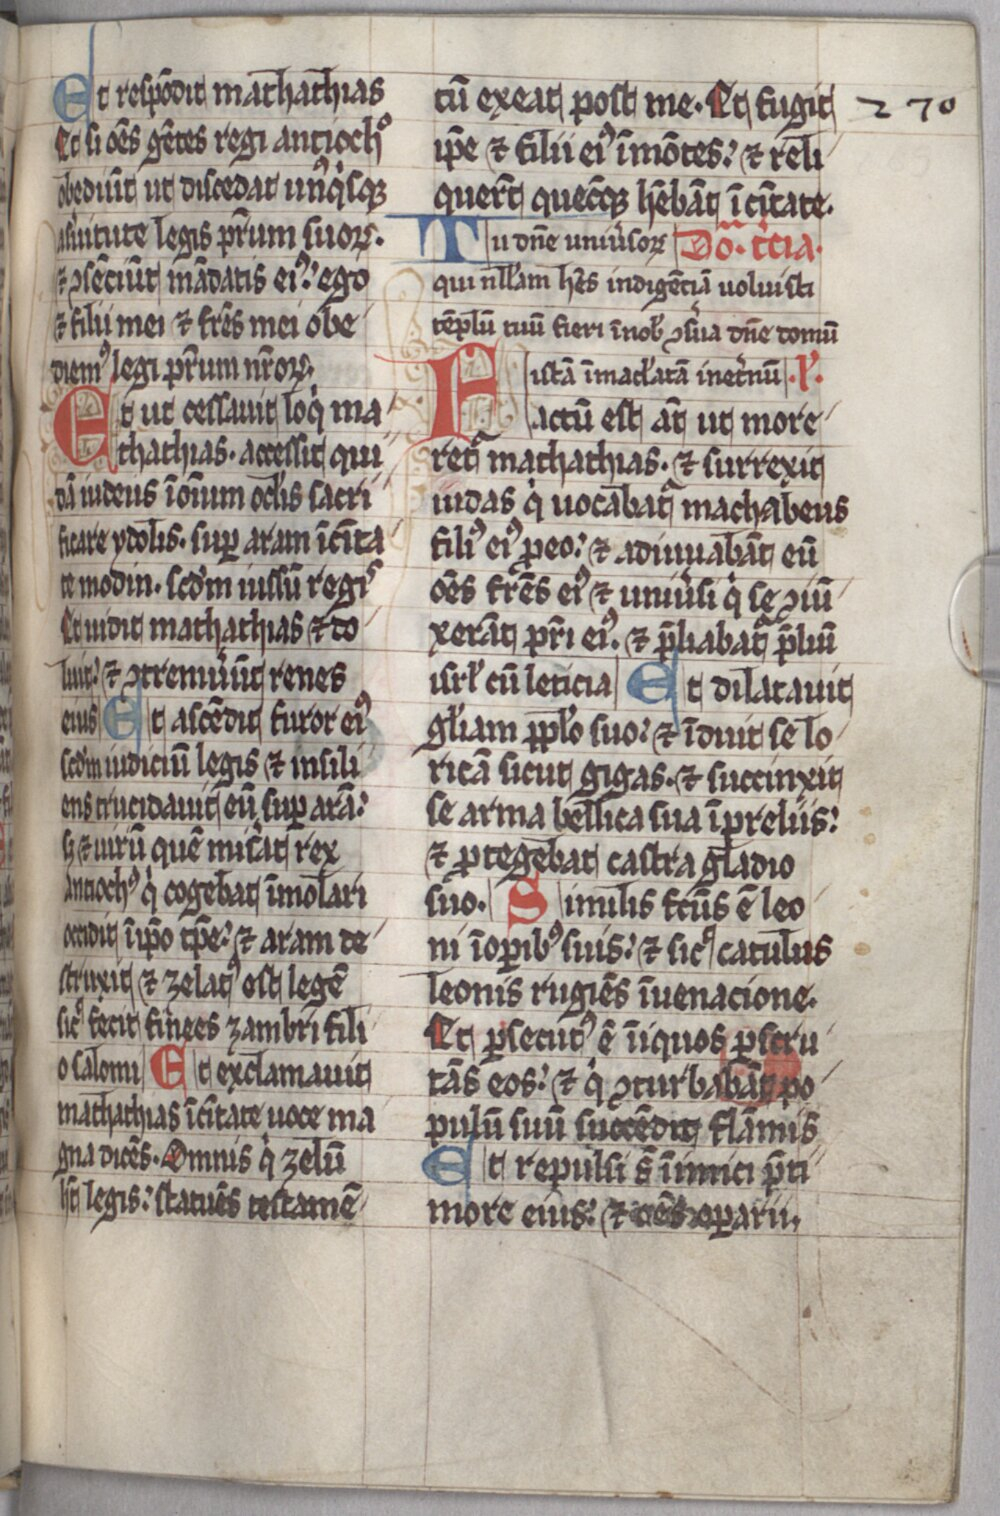 Et respōdit mathathias
Et si oēs gētes regi antiochꝰ
obediūt ut discedat unꝰqⁱsqꝫ
aẜuitute legis pr̄um suoꝝ.
⁊ ↄsēciūt mādatis eiꝰ: ego
⁊ filii mei ⁊ fr̄es mei obe
diemꝰ legi pr̄um nr̄oꝝ.
Et ut cessauit loqⁱ ma
thathias. accessit qui
dā iudeus ī oīum oclīs sacri
ficare ydolis. suꝑ aram ī cīta
te modin. scd̄m iussū regiꝰ
Et uidit mathathias ⁊ do
luit: ⁊ ↄtremuer̄ūt renes
eius Et ascēdit furor eiꝰ
scd̄m iudiciū legis ⁊ insili
ens trucidauit eū suꝑ arā:
sꝫ ⁊ uirū quē misat̄ rex
antiochꝰ qⁱ cogebat īmolari
occidit ī ip̄o tp̄e: ⁊ aram de
struxit ⁊ zelatꝰ est legē
sicᵗ fecit finees zambri fili
o salomi Et exclamauit
mathathias ī cīutate uoce ma
gna dicēs. Omnis qⁱ zelū
ht̄ legis: statuēs testamē
tū exeat post me. Et fugit 270
ip̄e ⁊ filii eiꝰ ī mōtes: ⁊ reli
quer̄t quecūqꝫ hēbāt ī cīutate.
Tu dn̄e uniu̾soꝝ Do.᷒ t̾cia.
qui nllām hēs indigēciā uoluisti
tēplū tuū fieri ī nobꝰ ↄẜua dn̄e domū
istā īmacl̄atā inet̾nū .Rͫ.
Factū est aū ut more
ret᷒ mathathias. ⁊ surrexit
iudas qⁱ uocābat᷒ machabeus
filiꝰ eiꝰ ꝓ eo: ⁊ adiuuabāt eū
oēs fr̄es eiꝰ ⁊ uniu̾si qⁱ se ↄiū
xerāt pr̄i eiꝰ. ⁊ p̄liabat᷒ p̄liū
isrl̄ cū leticia Et dilatauit
gl̄iam pplō suo: ⁊ īduit se lo
ricā sicut gigas. ⁊ succinxit
se arma bellica sua ī preliis:
⁊ ꝓtegebat castra gladio
suo. Similis fcūs ē leo
ni ī oꝑibꝰ suis: ⁊ sicᵗ catulus
leonis rugiēs ī uenacione.
Et ꝑsecutꝰ ē īiquos ꝑscru
tās eos: ⁊ qⁱ ↄturbabāt po
pulū suū succēdit flāmis
Et repulsi s̄ īimici p̄ ti
more eius: ⁊ oēs oꝑarii.